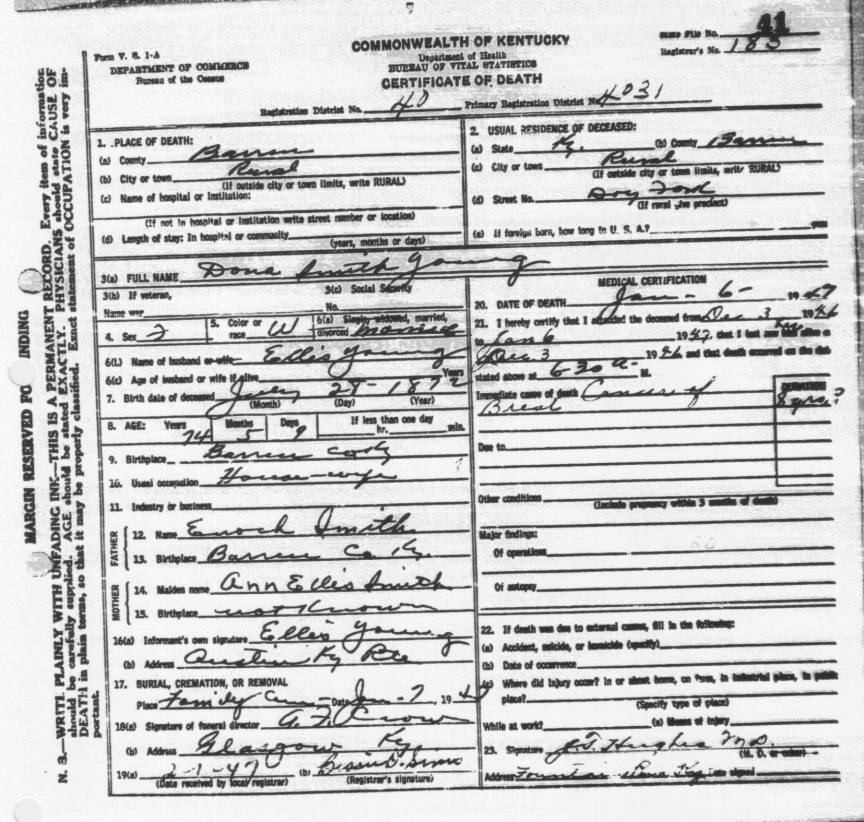 41
State File No.
Registrar's No. 185
Form V. S. 1-A
DEPARTMENT OF COMMERCE
Bureau of the Census
COMMONWEALTH OF KENTUCKY
Department of Health
BUREAU OF VITAL STATISTICS
CERTIFICATE OF DEATH
Registration District No. 40 Primary Registration District No. 4031
MARGIN RESERVED FO INDING
N. B.—WRIT PLAINLY WITH UNFADING INK—THIS IS A PERMANENT RECORD. Every item of information
should be carefully supplied. AGE should be stated EXACTLY. PHYSICIANS should state CAUSE OF
DEATH in plain terms, so that it may be properly classified. Exact statement of OCCUPATION is very im-
portant.
1. PLACE OF DEATH:
(a) County Barren
(b) City or town Rural
(If outside city or town limits, write RURAL)
(c) Name of hospital or institution:
(If not in hospital or institution write street number or location)
(d) Length of stay: In hospital or community
(years, months or days)
2. USUAL RESIDENCE OF DECEASED:
(a) State Ky. (b) County Barren
(c) City or town Rural
(If outside city or town limits, write RURAL)
(d) Street No.
(If rural give precinct)
(e) If foreign born, how long in U. S. A.? years
3(a) FULL NAME Dona Smith Young
3(b) If veteran, 3(c) Social Security
Name war No.
4. Sex F 5. Color or race W 6(a) Single, widowed, married, divorced married
6(b) Name of husband or wife Ellis Young
6(c) Age of husband or wife if alive Years
7. Birth date of deceased July 28 1872
(Month) (Day) (Year)
8. AGE: Years Months Days If less than one day
74 5 9 hr. min.
9. Birthplace Barren Co Ky
10. Usual occupation House-wife
11. Industry or business
FATHER
12. Name Enoch Smith
13. Birthplace Barren Co Ky.
MOTHER
14. Maiden name Ann Ellis Smith
15. Birthplace not Known
16(a) Informant's own signature Ellis Young
(b) Address Austin Ky Rte
17. BURIAL, CREMATION, OR REMOVAL
Place Family Date Jan-7, 1947
18(a) Signature of funeral director Crow
(b) Address Glasgow Ky
19(a) 2-1-47 (b)
(Date received by local registrar) (Registrar's signature)
MEDICAL CERTIFICATION
20. DATE OF DEATH Jan - 6 - 1947
21. I hereby certify that I attended the deceased from Dec 3 1946
to Jan 6 1947, that I last saw alive on
Dec 3 1946 and that death occurred on the date
stated above at 6-30 a- M.
Immediate cause of death Cancer of
Breast
DURATION
8 yrs?
Due to
Other conditions
(Include pregnancy within 3 months of death)
Major findings:
Of operations
Of autopsy
22. If death was due to external causes, fill in the following:
(a) Accident, suicide, or homicide (specify)
(b) Date of occurrence
(c) Where did injury occur? In or about home, on farm, in industrial place, in public
place?
(Specify type of place)
While at work? (e) Means of injury
23. Signature Hughes M.D.
(M. D. or other)
Address Fountain Run Ky Date signed